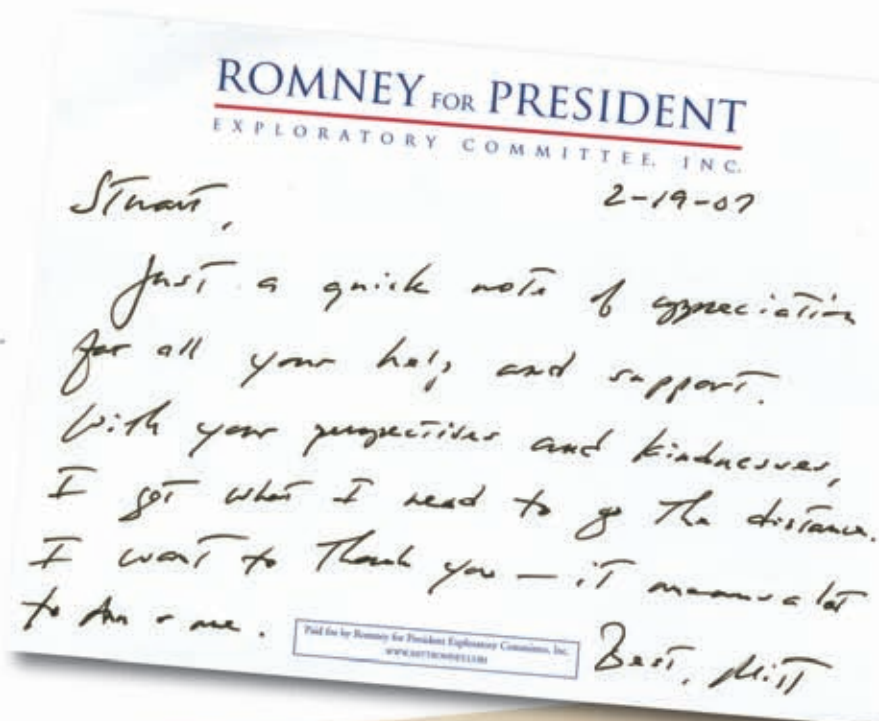 ROMNEY FOR PRESIDENT
EXPLORATORY COMMITTEE, INC.
2-19-07
Stuart,
Just a quick note of appreciation
for all your help and support.
With your perspectives and kindnesses,
I got what I need to go the distance.
I want to thank you — it means a lot
to Ann & me.
Paid for by Romney for President Exploratory Committee, Inc.
WWW.MITTROMNEY.COM
Best, Mitt